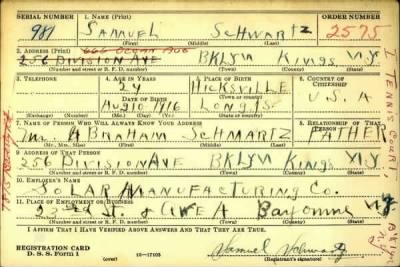 SERIAL NUMBER 1. NAME (Print) ORDER NUMBER
981 SAMUEL SCHWARTZ 2575
(First) (Middle) (Last)
2. ADDRESS (Print) 666 OCEAN AVE
256 DIVISION AVE BKLYN KINGS N.Y
(Number and street or R. F. D. number) (Town) (County) (State)
3. TELEPHONE 4. AGE IN YEARS 5. PLACE OF BIRTH 6. COUNTRY OF CITIZENSHIP
24 HICKSVILLE
DATE OF BIRTH (Town or county) U.S.A
AUG 10 1916 LONG IS
(Exchange) (Number) (Mo.) (Day) (Yr.) (State or country)
7. NAME OF PERSON WHO WILL ALWAYS KNOW YOUR ADDRESS 8. RELATIONSHIP OF THAT PERSON
Mr. ABRAHAM SCHWARTZ FATHER
(Mr., Mrs., Miss) (First) (Middle) (Last)
9. ADDRESS OF THAT PERSON
256 DIVISION AVE BKLYN KINGS N.Y
(Number and street or R. F. D. number) (Town) (County) (State)
10. EMPLOYER'S NAME
SOLAR MANUFACTURING CO.
11. PLACE OF EMPLOYMENT OR BUSINESS
22nd ST. & AVE A Bayonne N.J
(Number and street or R. F. D. number) (Town) (County) (State)
I AFFIRM THAT I HAVE VERIFIED ABOVE ANSWERS AND THAT THEY ARE TRUE.
REGISTRATION CARD
D. S. S. Form 1 16—17105 Samuel Schwartz
(Registrant's signature)
TENNIS COURT,
BKLYN
N.Y.